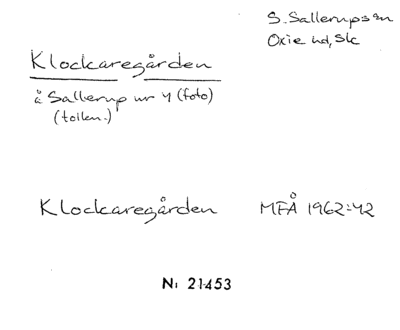 S. Sallerups sn
Oxie hd, Sk
Klockaregården
å Sallerup nr 4 (foto)
(tolkn.)
Klockaregården MFÅ 1962:42
N: 21453